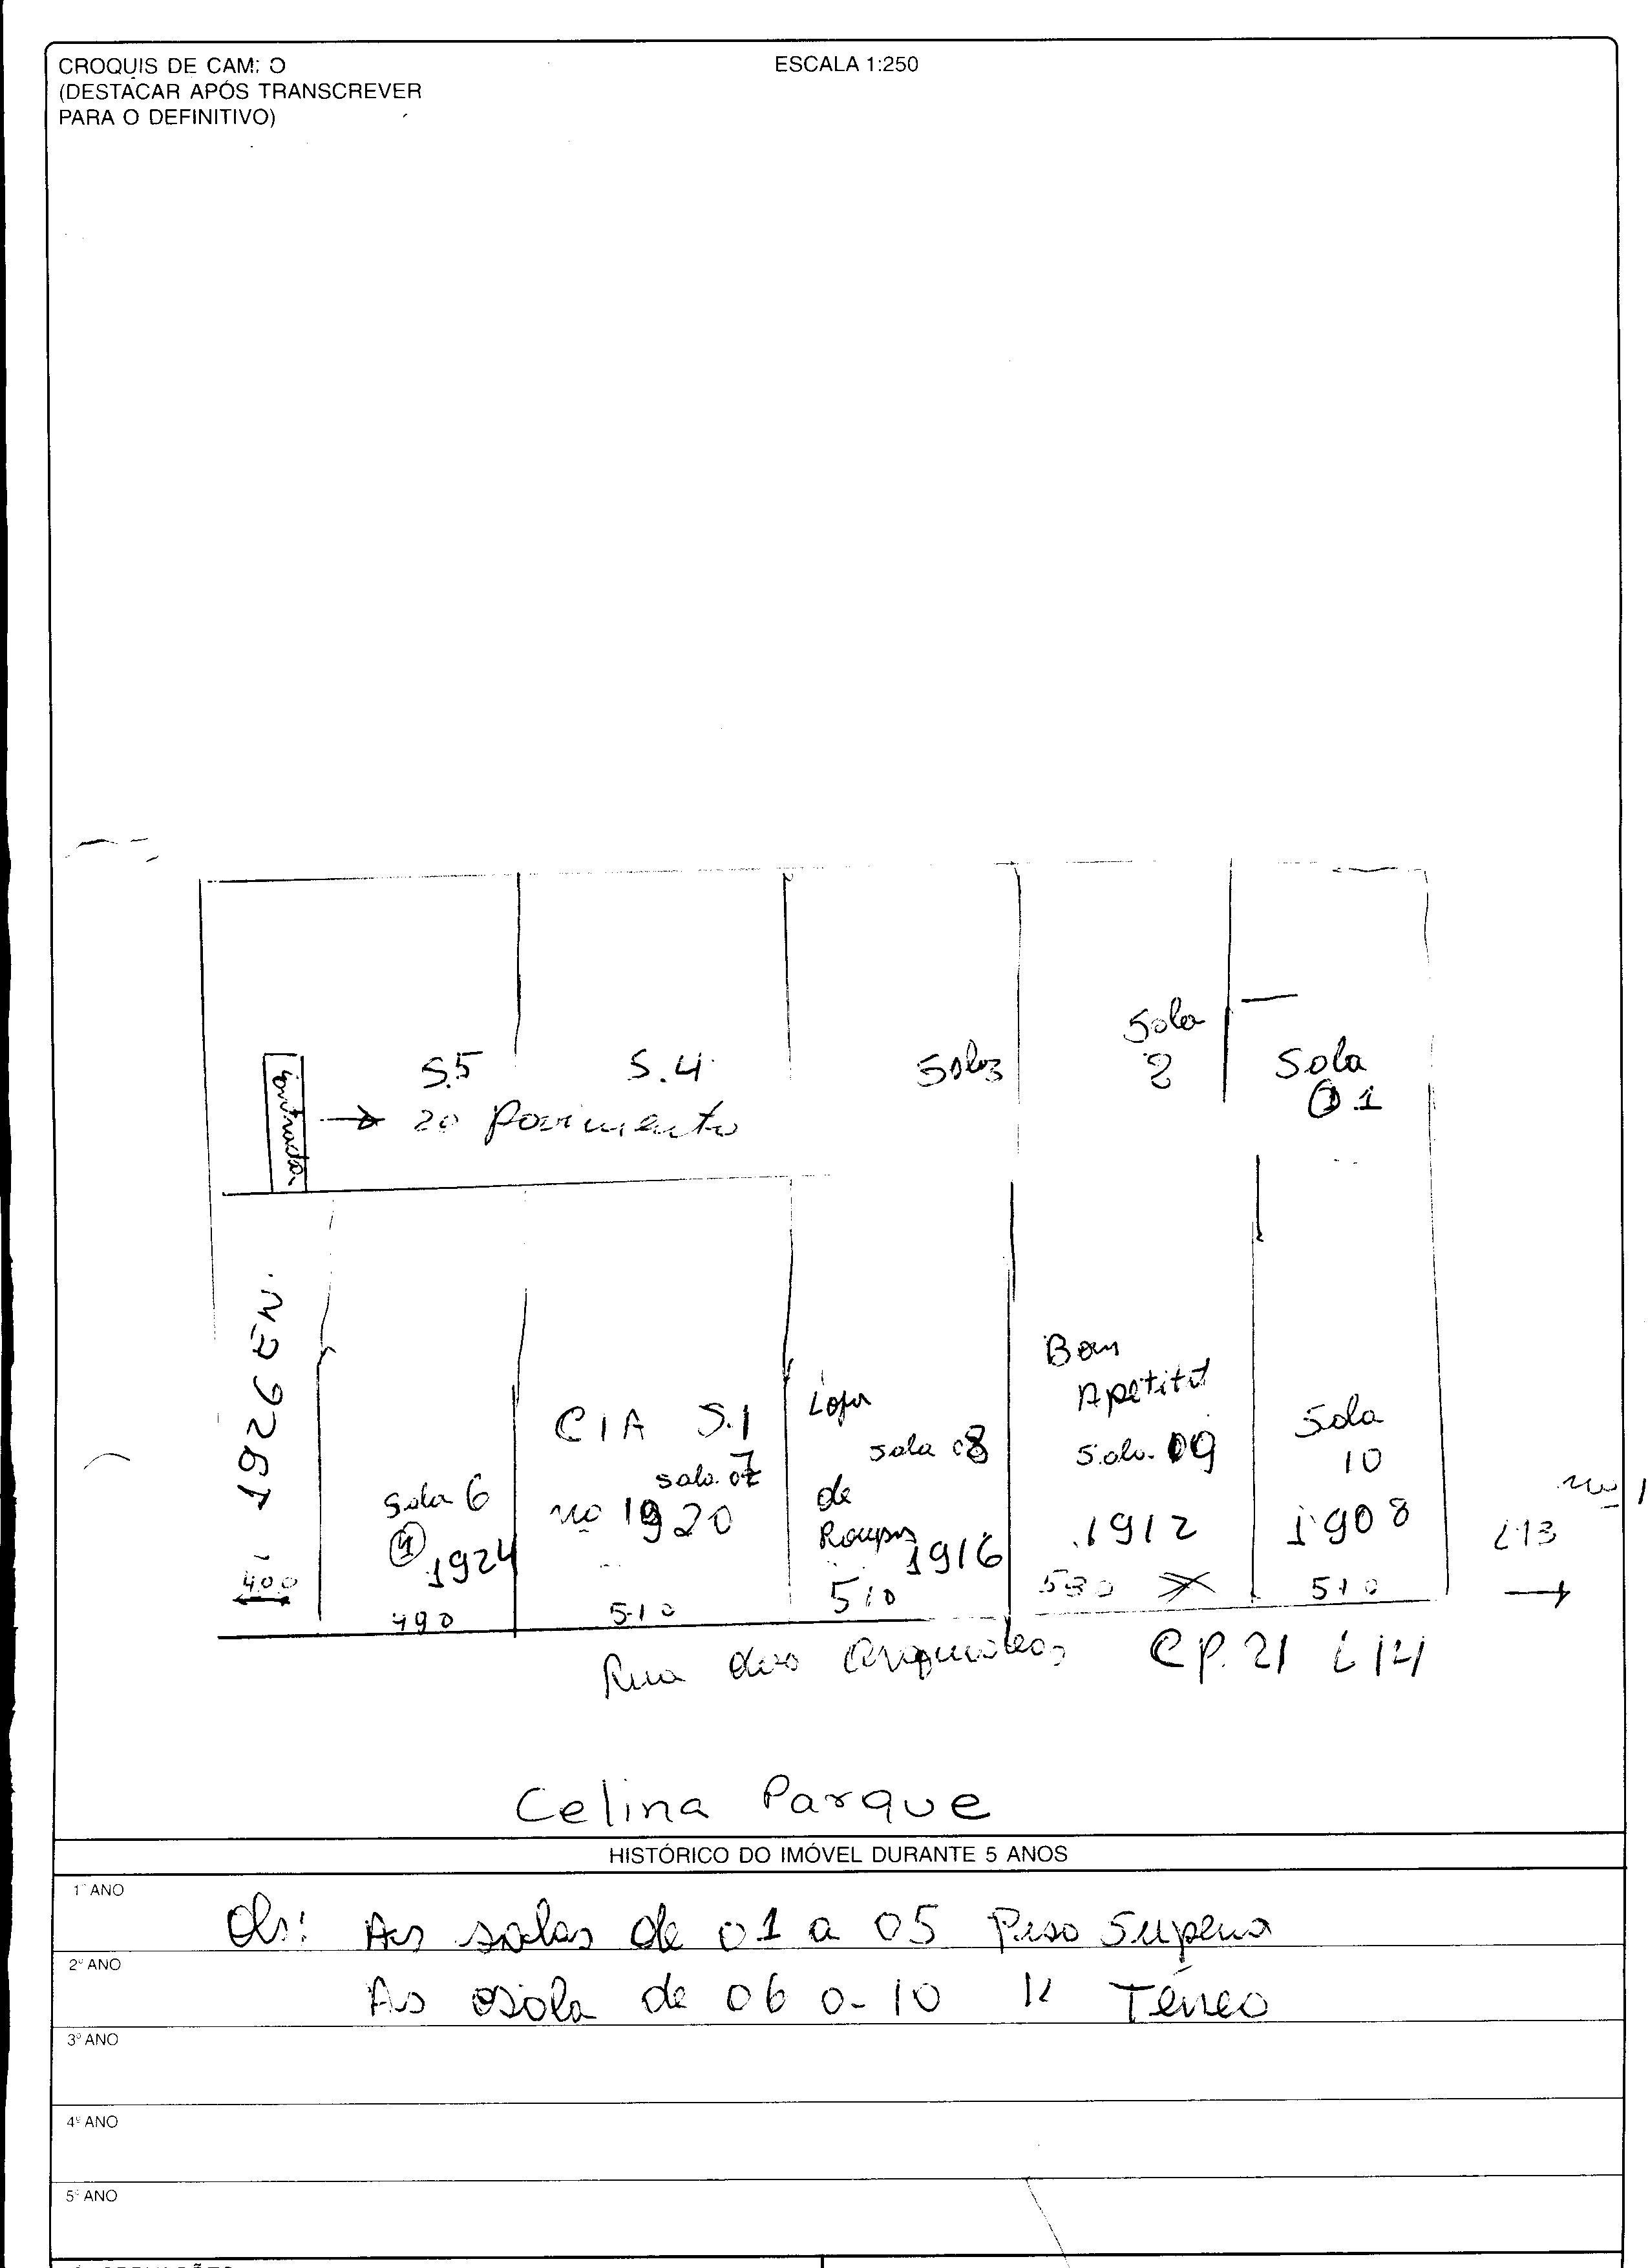 CROQUIS DE CAM: O
(DESTACAR APÓS TRANSCREVER
PARA O DEFINITIVO)
ESCALA 1:250
Sala
2
Sala
01
S.5
S.4
Sala 3
Entrada
20 Pavimento
1926 EN.
400
Sala 6
4
1924
490
CIA S.1
sala 07
no 1920
510
Loja
sala 08
de
Roupas
1916
510
Bom
Apetite
Sala 09
1912
530
Sala
10
1908
510
no 1
L13
Rua dos CP. 21 L 14
Celina Parque
HISTÓRICO DO IMÓVEL DURANTE 5 ANOS
1º ANO
Obs: As salas de 01 a 05 Piso Superior
2º ANO
As sala de 06 a 10 11 Térreo
3º ANO
4º ANO
5º ANO